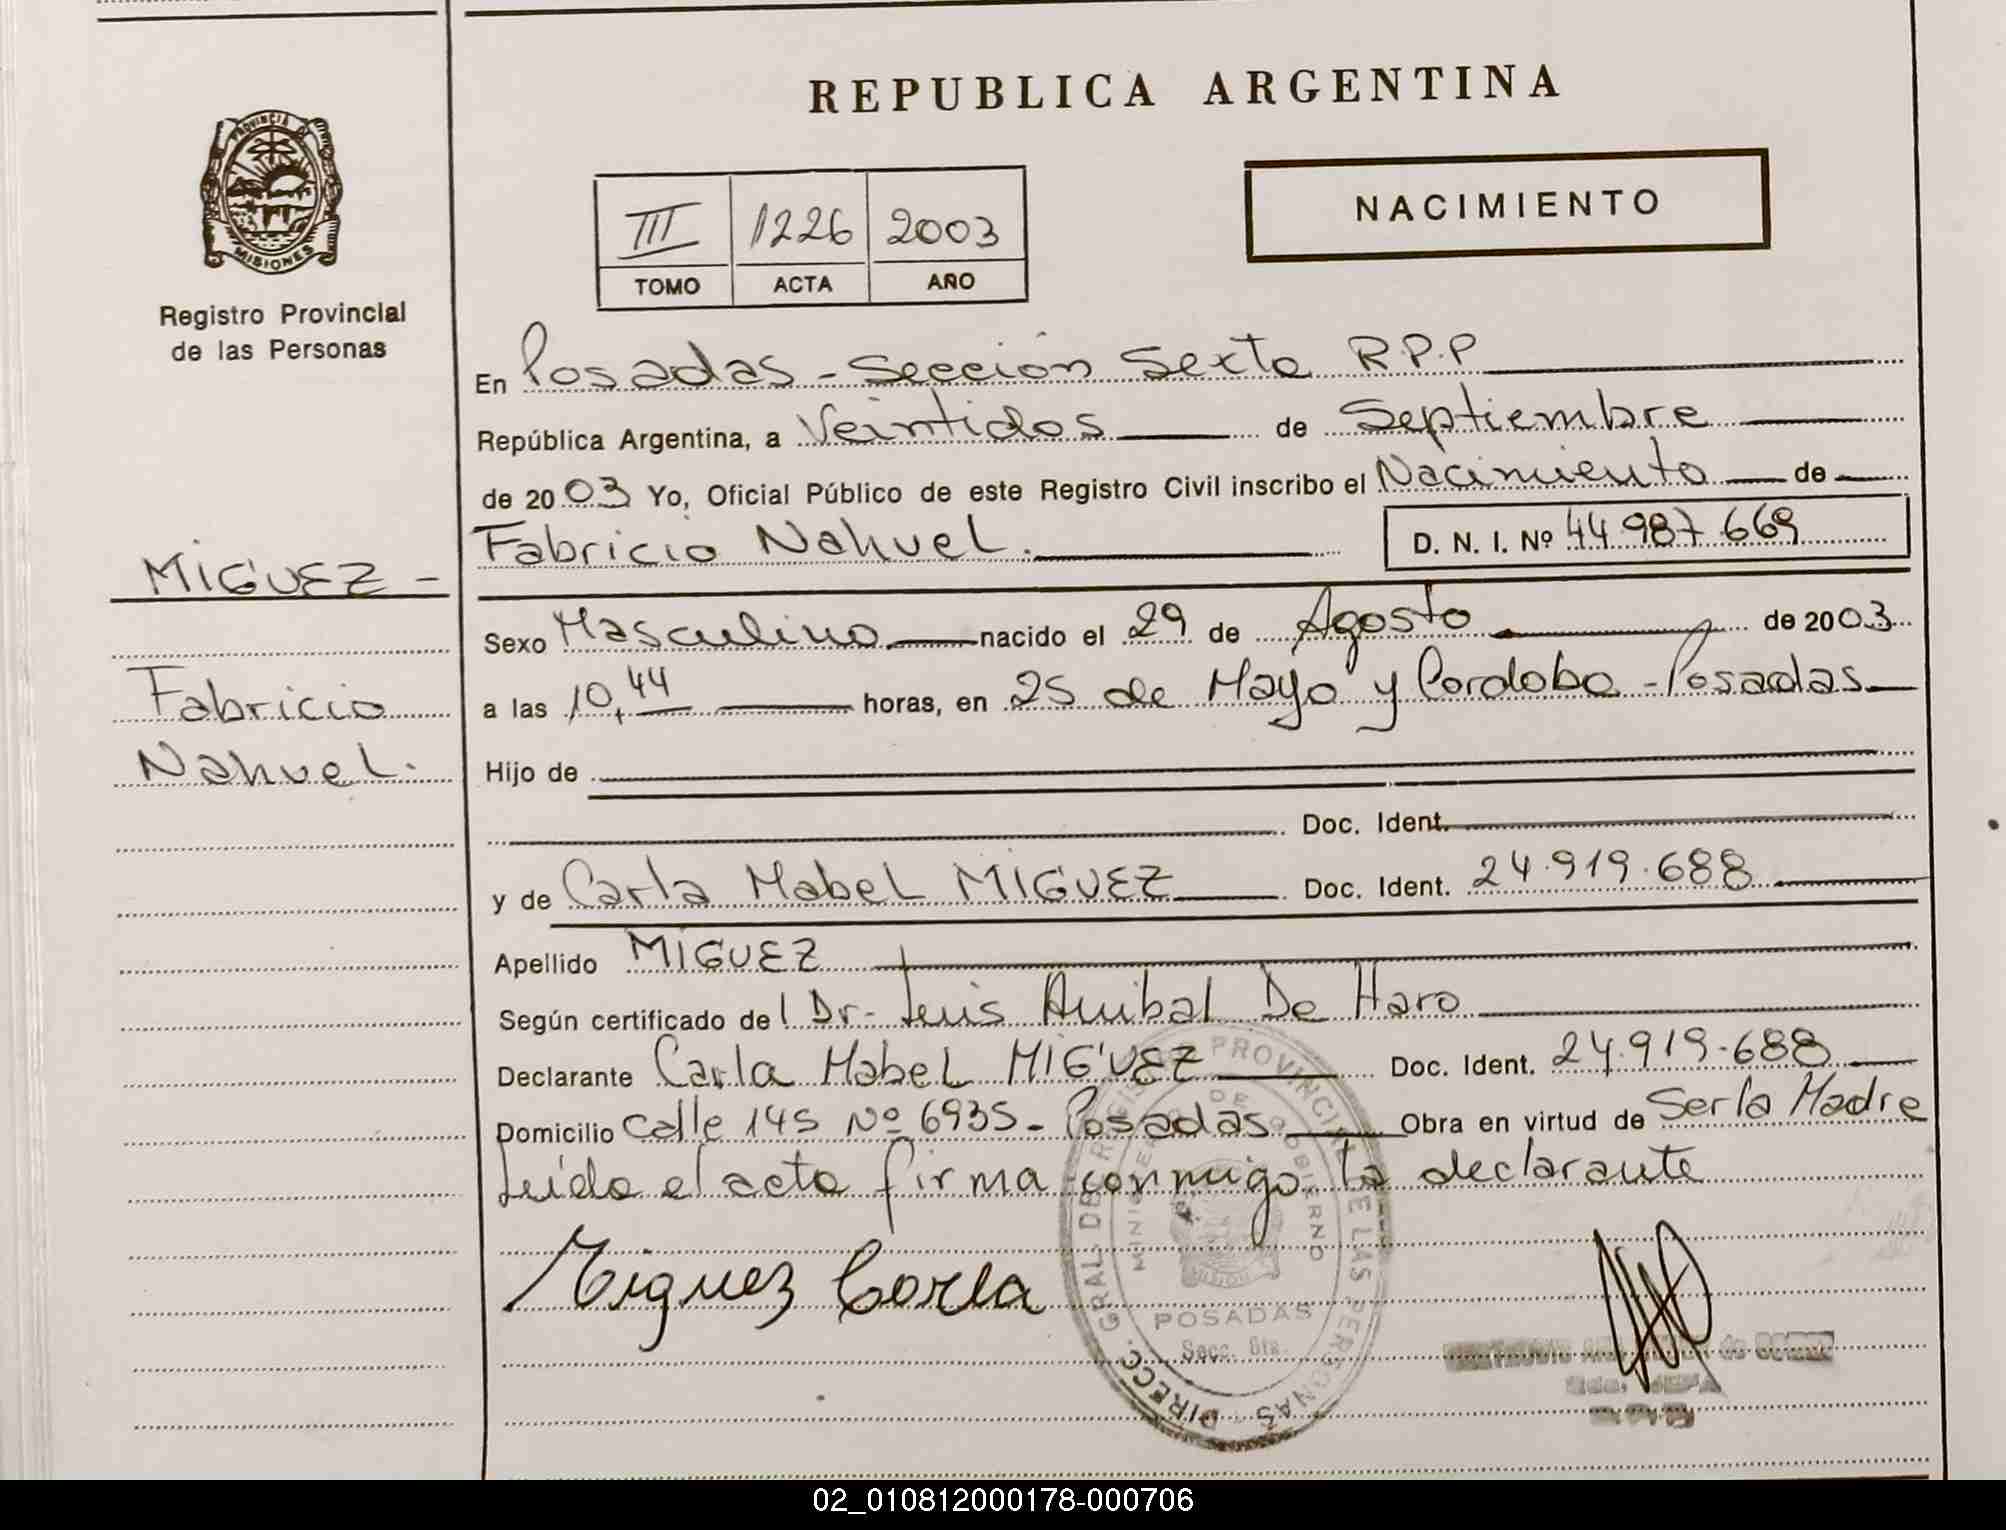 REPUBLICA ARGENTINA
PROVINCIA DE
MISIONES
Registro Provincial
de las Personas
III 1226 2003
TOMO ACTA AÑO
NACIMIENTO
En Posadas - Sección Sexta R.P.P
República Argentina, a Veintidos de Septiembre
de 2003 Yo, Oficial Público de este Registro Civil inscribo el Nacimiento de
Fabricio Nahuel. D. N. I. Nº 44.987.669
MIGUEZ -
Fabricio
Nahuel.
Sexo Masculino nacido el 29 de Agosto de 2003
a las 10,44 horas, en 25 de Mayo y Cordoba - Posadas
Hijo de
Doc. Ident.
y de Carla Mabel MIGUEZ Doc. Ident. 24.919.688
Apellido MIGUEZ
Según certificado del Dr. Luis Anibal De Haro
Declarante Carla Mabel MIGUEZ Doc. Ident. 24.919.688
Domicilio calle 145 Nº 6935 - Posadas Obra en virtud de Ser la Madre
Leída el acta firma conmigo la declarante
Miguez Carla
DIRECC. GRAL. DEL REGISTRO PROVINCIAL DE LAS PERSONAS
MINISTERIO DE GOBIERNO
POSADAS
Secc. 6ta.
02_010812000178-000706